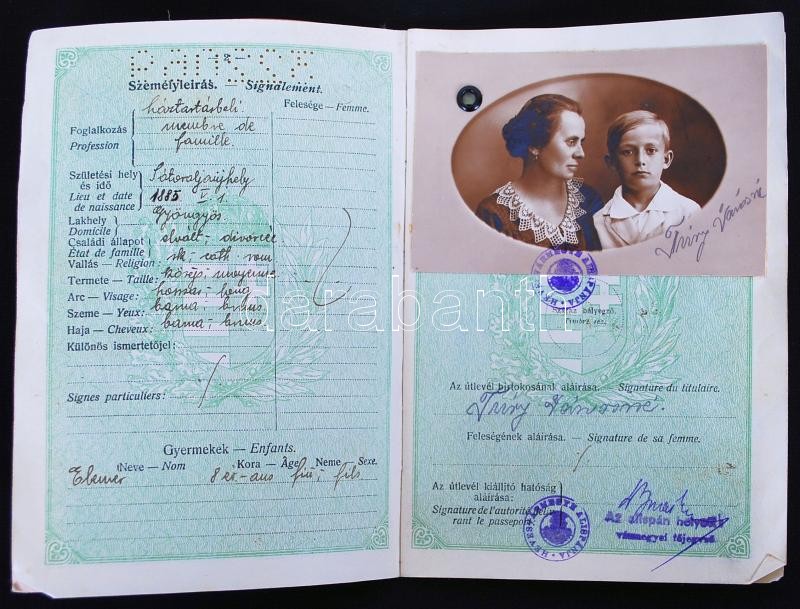 Személyleírás. — Signalement.
Felesége — Femme.
háztartásbeli
Foglalkozás
Profession
membre de
famille.
Születési hely
és idő
Lieu et date
de naissance
Sátoraljaújhely
1885 V. 1.
Lakhely
Domicile
Gyöngyös
Családi állapot
État de famille
elvált - divorcée
Vallás — Religion:
rk. cath. rom
Termete — Taille:
közép, moyenne
Arc — Visage:
hosszú - long
Szeme — Yeux:
barna, bruns
Haja — Cheveux:
barna, bruns
Különös ismertetőjel:
Signes particuliers:
Gyermekek — Enfants.
Neve — Nom Kora — Âge Neme — Sexe.
Elemér 8 év - ans fiu, fils
Jánosné
HEVES VÁRMEGYE ALISPÁNJA
Az útlevél birtokosának aláírása. — Signature du titulaire.
Jánosné
Feleségének aláírása. — Signature de sa femme.
Az útlevél kiállító hatóság
aláírása:
Signature de l'autorité
rant le passeport
HEVES VÁRMEGYE ALISPÁNJA
Az alispán helyett
vármegyei főjegyző
darabanth